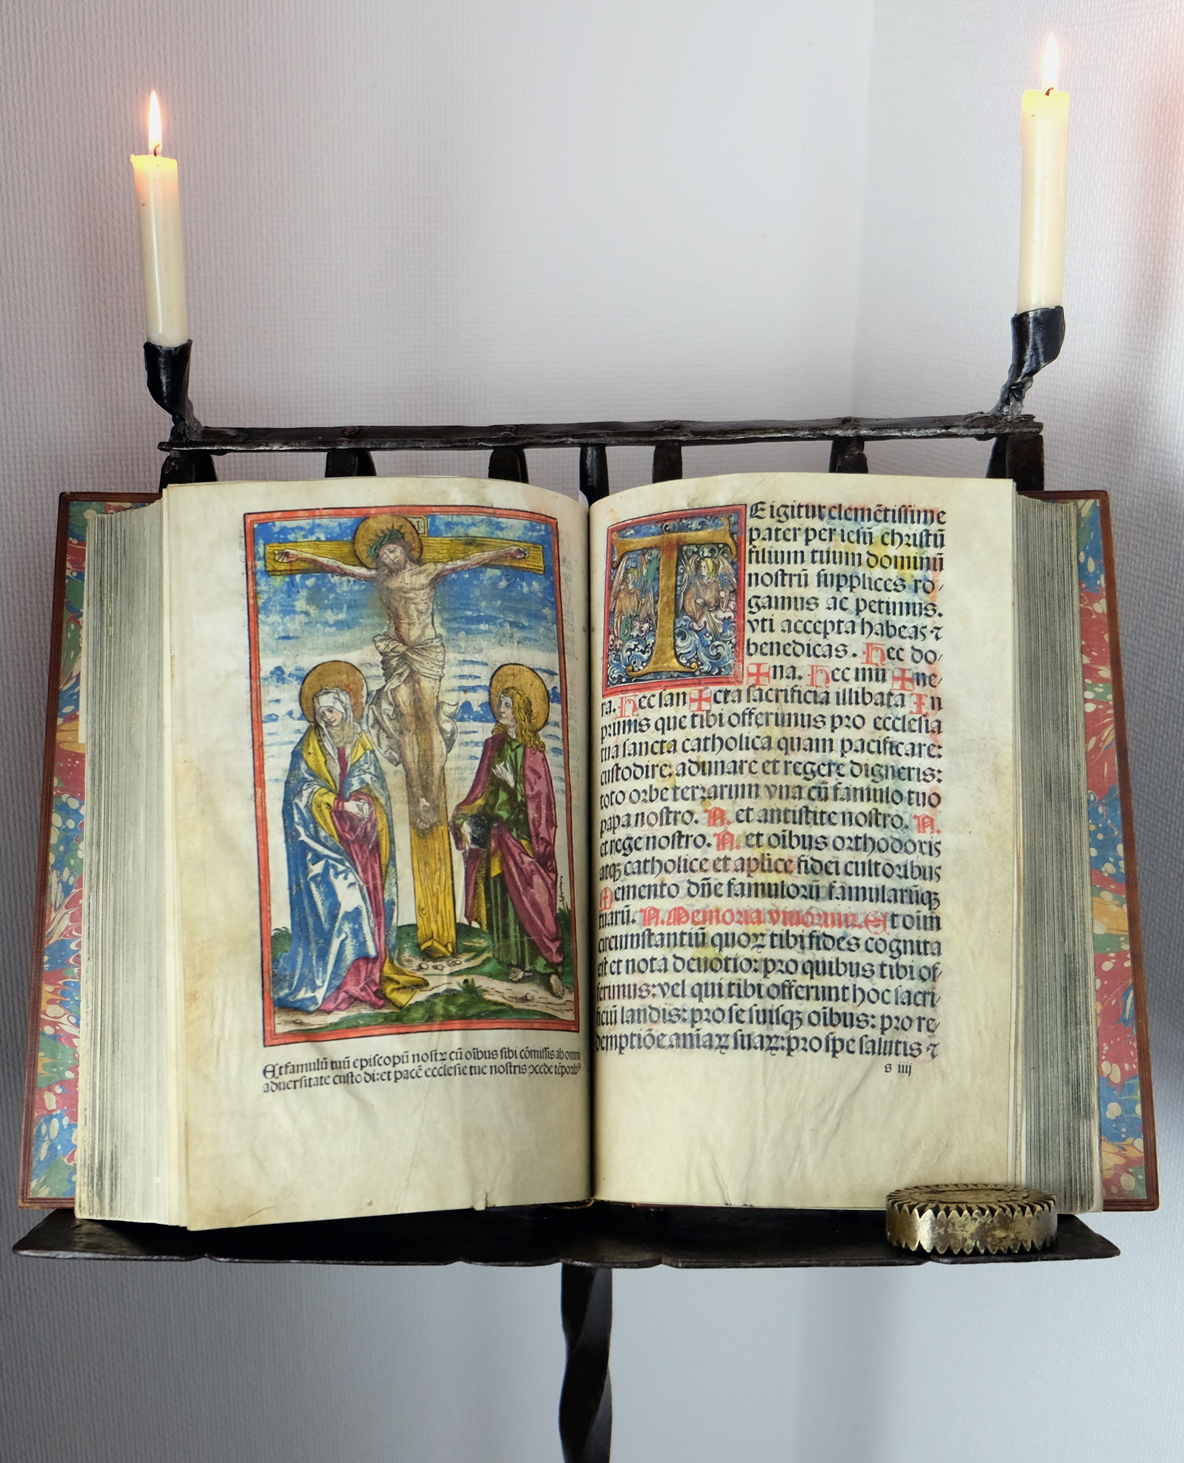 Et famulū tuū episcopū nostꝝ cū oībus sibi cōmissis ab omni
aduersitate custodi: et pacē ecclesie tue nostris ꝯcede tēporibꝰ
T
E igitur clemētissime
pater per iesū christū
filium tuum dominū
nostrū supplices ro⸗
gamus ac petimus.
vti accepta habeas ⁊
benedicas. Hec do⸗
✠na. Hec mu✠ne⸗
ra. Hec san✠cta sacrificia illibata In
primis que tibi offerimus pro ecclesia
tua sancta catholica quam pacificare:
custodire: adunare et regere digneris:
toto orbe terrarum vna cū famulo tuo
papa nostro. N. et antistite nostro. N.
et rege nostro. N. et oībus orthodoxis
atqꝫ catholice et aplice fidei cultoribus
Memento dn̄e famulorū famularūqꝫ
tuarū. N. Memoria viuorum. Et oīm
circumstantiū quoꝝ tibi fides cognita
est et nota deuotio: pro quibus tibi of⸗
ferimus: vel qui tibi offerunt hoc sacri⸗
ficiū laudis: pro se suisqꝫ oībus: pro re⸗
demptiōe aniaꝝ suaꝝ: pro spe salutis ⁊
s iiij